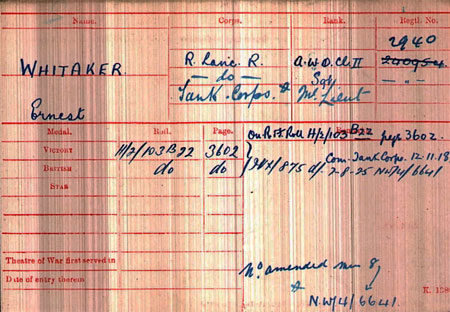 Name. Corps. Rank. Regtl. No.
2940
WHITAKER. R. Lanc. R. A.W.O.Cl.II 240954
— do — Sgt — " —
Tank. Corps. & Lieut
Ernest
Medal. Roll. Page. On Roll H/2/103B22 page 3602.
VICTORY H/2/103B22 3602 Com. Tank Corps. 12.11.18
BRITISH do do /875 d/. 7-8-25 NW/4/6641
STAR
Theatre of War first served in
Date of entry therein
No amended
&
N.W/4/6641.
K. 1380